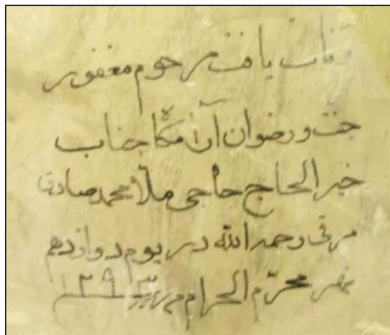 وفات یافت مرحوم مغفور
جنت و رضوان آرامگاه جناب
خیر الحاج حاجی ملا محمد صادق
رحمه الله در یوم دوازدهم
شهر محرم الحرام ۱۲۹۳